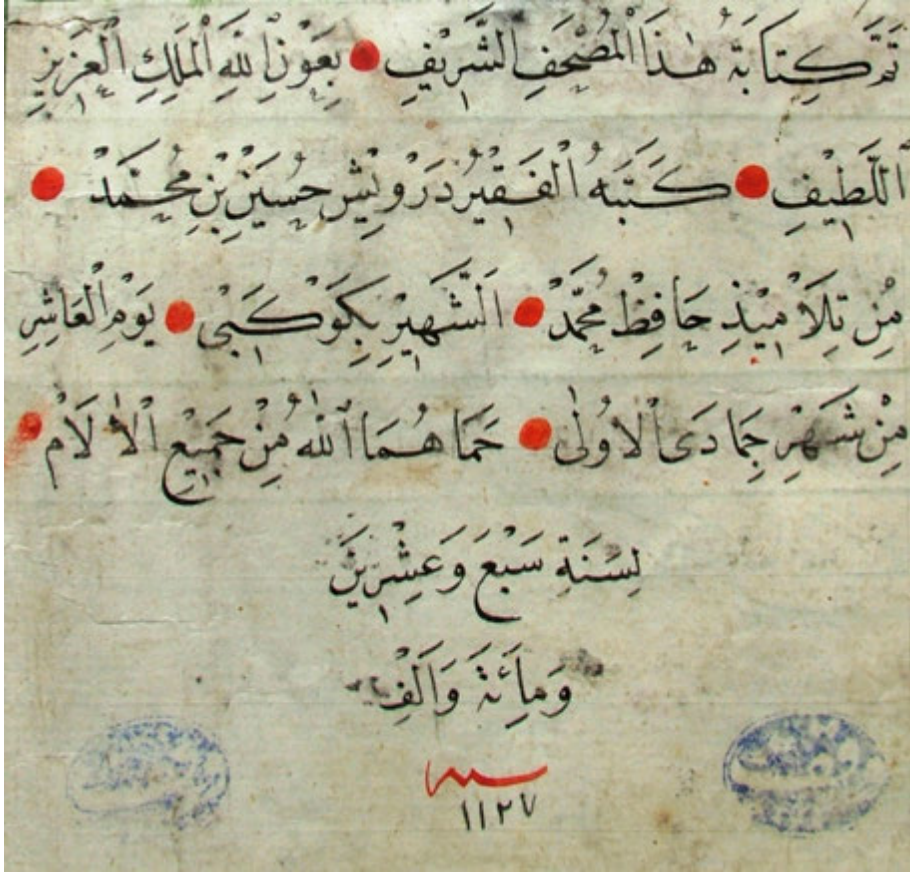 تَمَّ كِتَابَةُ هٰذَا الْمُصْحَفِ الشَّرِيْفِ بِعَوْنِ اللهِ الْمَلِكِ الْعَزِيْزِ
اللَّطِيْفِ كَتَبَهُ الْفَقِيْرُ دَرْوِيْش حُسَيْن بِنْ مُحَمَّدْ
مِنْ تِلَامِيْذِ حَافِظْ مُحَمَّدْ اَلشَّهِيْرْ بِكَوْكَبِى يَوْمِ الْعَاشِرِ
مِنْ شَهْرِ جِمَادَى الْاُولٰى حَمَاهُمَا اللهُ مِنْ جَمِيْعِ الْاٰلَامْ
لِسَنَةِ سَبْعَ وَعِشْرِيْنَ
وَمِأَئَةَ وَاَلْفِ
سنه
١١٢٧